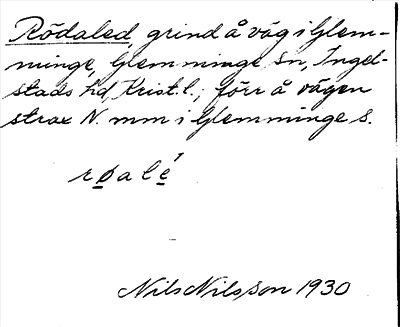 Rödaled, grind å väg i Glem-
minge, Glemminge sn, Ingel-
stads hd, Krist.l.; förr å vägen
strax N. mm i Glemminge s.
røalé
Nils Nilsson 1930